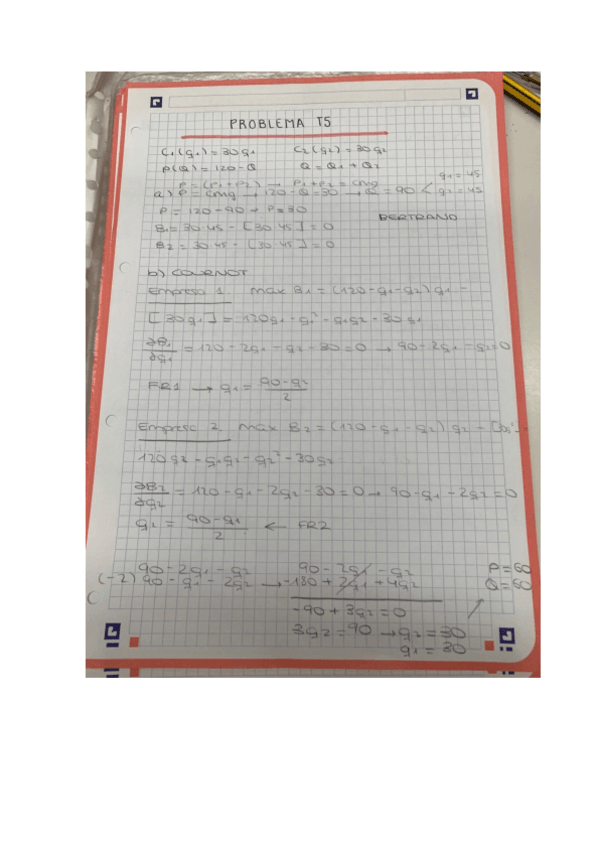 PROBLEMA T5
C1(q1) = 30q1 C2(q2) = 30q2
P(Q) = 120 - Q Q = Q1 + Q2
P = (P1 + P2) → P1 + P2 = Cmg q1 = 45
a) P = Cmg → 120 - Q = 30 → Q = 90 < q2 = 45
P = 120 - 90 → P = 30 BERTRAND
B1 = 30·45 - [30·45] = 0
B2 = 30·45 - [30·45] = 0
b) COURNOT
Empresa 1 max B1 = (120 - q1 - q2) q1 -
[30q1] = 120q1 - q1² - q1q2 - 30q1
∂B1/∂q1 = 120 - 2q1 - q2 - 30 = 0 → 90 - 2q1 - q2 = 0
FR1 → q1 = (90 - q2)/2
Empresa 2 max B2 = (120 - q1 - q2) q2 -
120q2 - q1q2 - q2² - 30q2
∂B2/∂q2 = 120 - q1 - 2q2 - 30 = 0 → 90 - q1 - 2q2 = 0
q2 = (90 - q1)/2 ← FR2
90 - 2q1 - q2 90 - 2q1 - q2 P = 60
(-2) 90 - q1 - 2q2 → -180 + 2q1 + 4q2 Q = 60
-90 + 3q2 = 0
3q2 = 90 → q2 = 30
q1 = 30